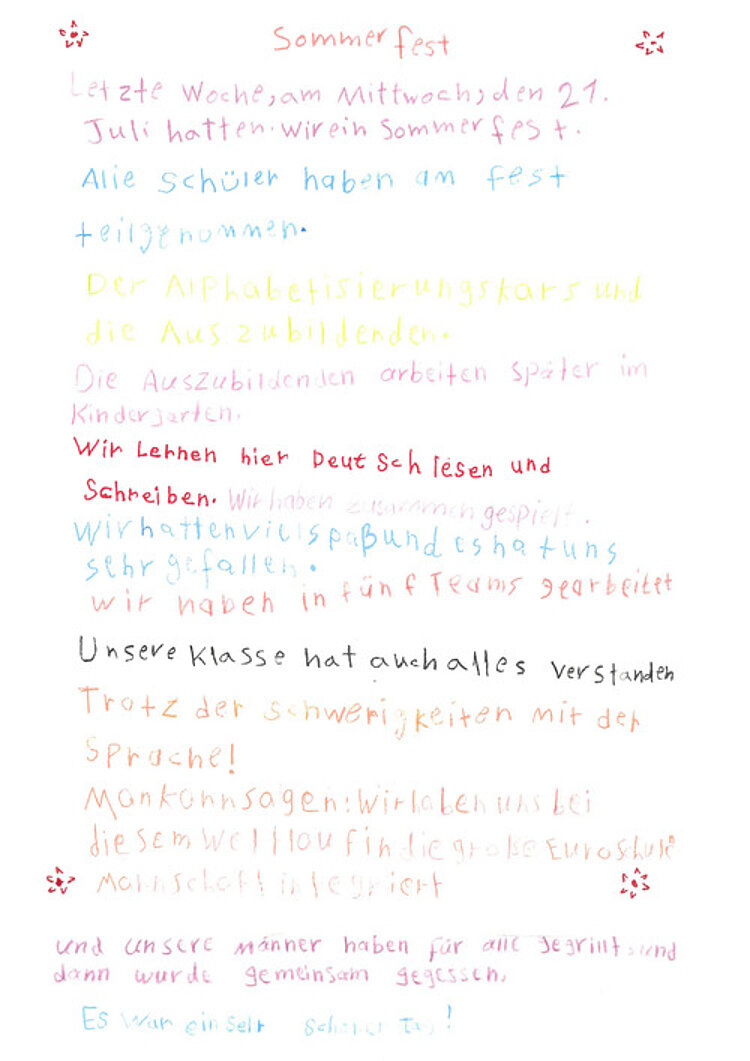 Sommerfest
Letzte Woche, am Mittwoch, den 21.
Juli hatten wir ein Sommerfest.
Alle Schüler haben am fest
teilgenommen.
Der Alphabetisierungskars und
die Auszubildenden.
Die Auszubildenden arbeiten später im
Kindergarten.
Wir Lernen hier Deutsch lesen und
Schreiben. Wir haben zusammen gespielt.
Wir hatten viel spaß und es hat uns
sehr gefallen.
Wir haben in fünf Teams gearbeitet
Unsere Klasse hat auch alles verstanden
Trotz der schwerigkeiten mit der
Sprache!
Man kann sagen: Wir haben uns bei
diesem in die große
Mannschaft integriert
und unsere männer haben für alle gegrillt, und
dann wurde gemeinsam gegessen,
Es war ein sehr schöner tag!